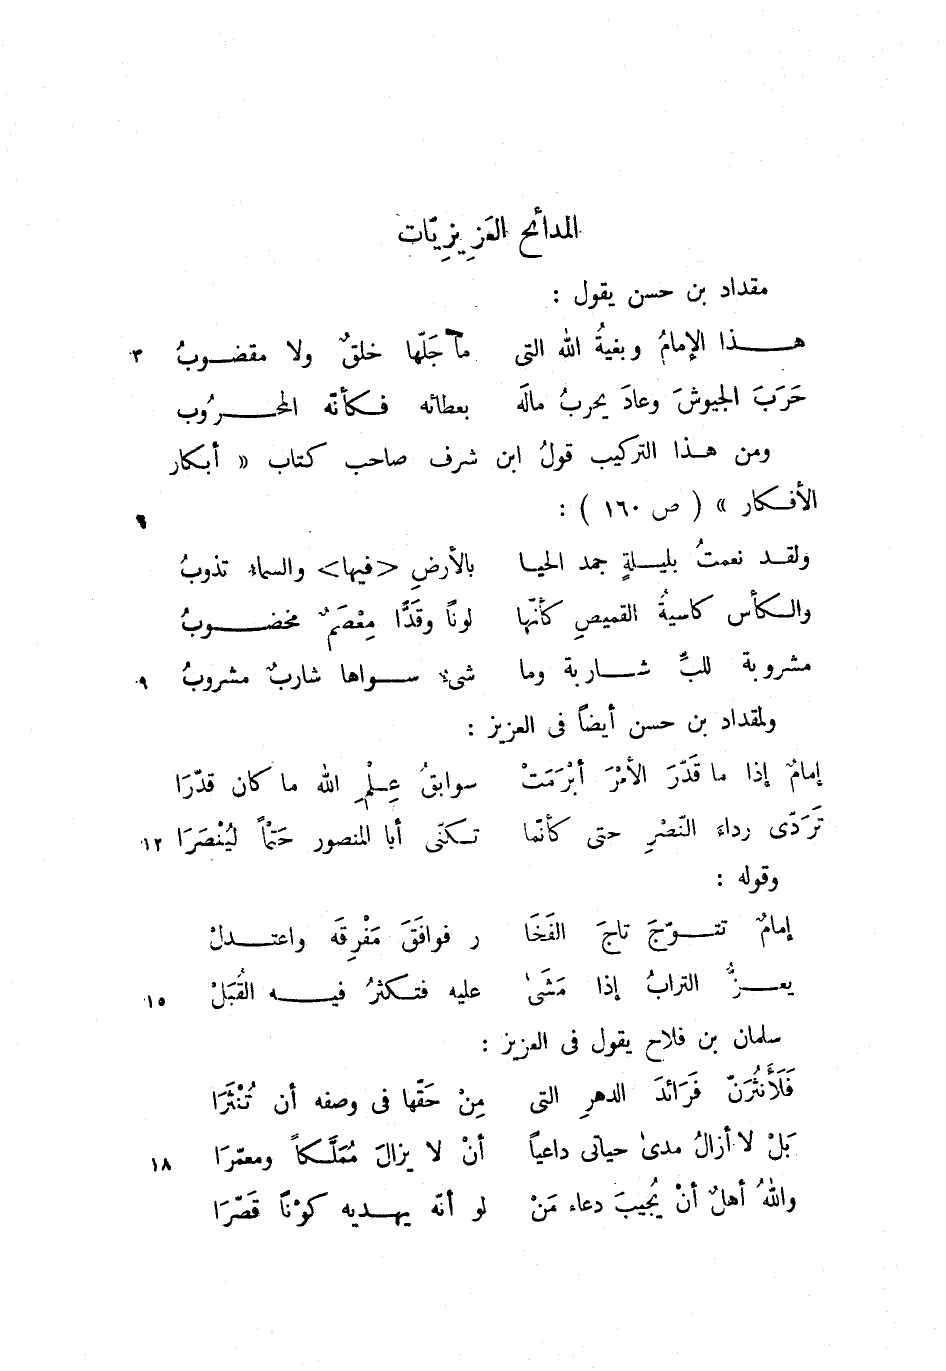 المدائح العَزِيزِيّات
مقداد بن حسن يقول :
هـذا الإمامُ وبغيةُ الله التى ما جَلّها خلقٌ ولا مقضوبُ ٣
حَرَبَ الجيوشَ وعادَ يحربُ مالَه بعطائه فكأنّه المحروُب
ومن هذا التركيب قولُ ابن شرف صاحب كتاب « أبكار
الأفكار » ( ص ١٦٠ ) : ٦
ولقد نعمتُ بليلةٍ جمد الحيا بالأرضِ <فيها> والسماء تذوبُ
والكأس كاسيةُ القميصِ كأنّها لونًا وقَدًّا مِعْصَمٌ مخضوبُ
مشروبة للبِّ شاربة وما شىء سواها شاربٌ مشروبُ ٩
ولمقداد بن حسن أيضاً فى العزيز :
إمامٌ إذا ما قَدّرَ الأمْرَ أبْرَمَتْ سوابقُ عِلْمِ الله ما كان قدّرَا
تَرَدّى رداءَ النّصْرِ حتى كأنّما تكنّى أبا المنصور حَتْماً ليُنْصَرَا ١٢
وقوله :
إمامٌ تتوّجَ تاجَ الفَخَا ر فوافَقَ مَفْرِقَه واعتدلْ
يعزُّ الترابُ إذا مَشَىٰ عليه فتكثرُ فيه القُبَلْ ١٥
سلمان بن فلاح يقول فى العزيز :
فَلَأَنثُرَنّ فَرَائدَ الدهرِ التى مِنْ حَقّها فى وصفه أن تُنْثَرَا
بَلْ لا أزالُ مدىٰ حياتى داعياً أنْ لا يزالَ مُمَلَّكاً ومعمّرَا ١٨
واللهُ أهلٌ أنْ يُجيبَ دعاء مَنْ لو أنّه يهديه كوْنًا قَصّرَا